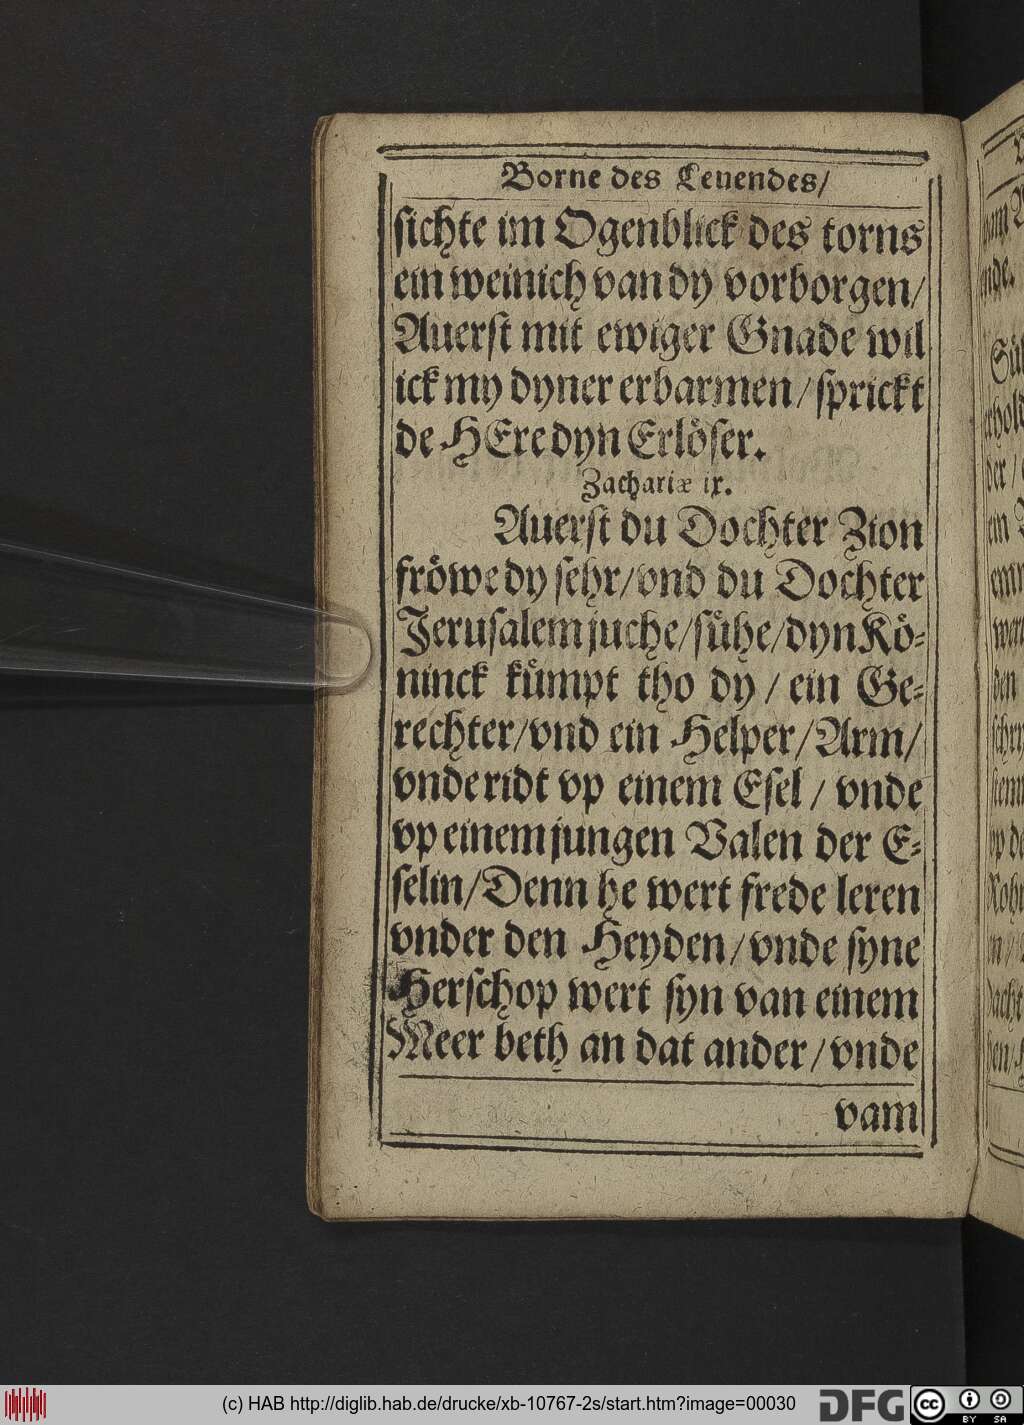 Borne des Leuendes/
sichte im Ogenblick des torns
ein weinich van dy vorborgen/
Auerst mit ewiger Gnade wil
ick my dyner erbarmen/sprickt
de HEre dyn Erlöser.
Zachariæ ix.
Auerst du Dochter Zion
fröwe dy sehr/vnd du Dochter
Jerusalem juche/sühe/dyn Kö-
ninck kümpt tho dy/ein Ge-
rechter/vnd ein Helper/Arm/
vnde ridt vp einem Esel/vnde
vp einem jungen Valen der E-
selin/Denn he wert frede leren
vnder den Heyden/vnde syne
Herschop wert syn van einem
Meer beth an dat ander/vnde
vam
(c) HAB http://diglib.hab.de/drucke/xb-10767-2s/start.htm?image=00030
DFG
cc BY SA